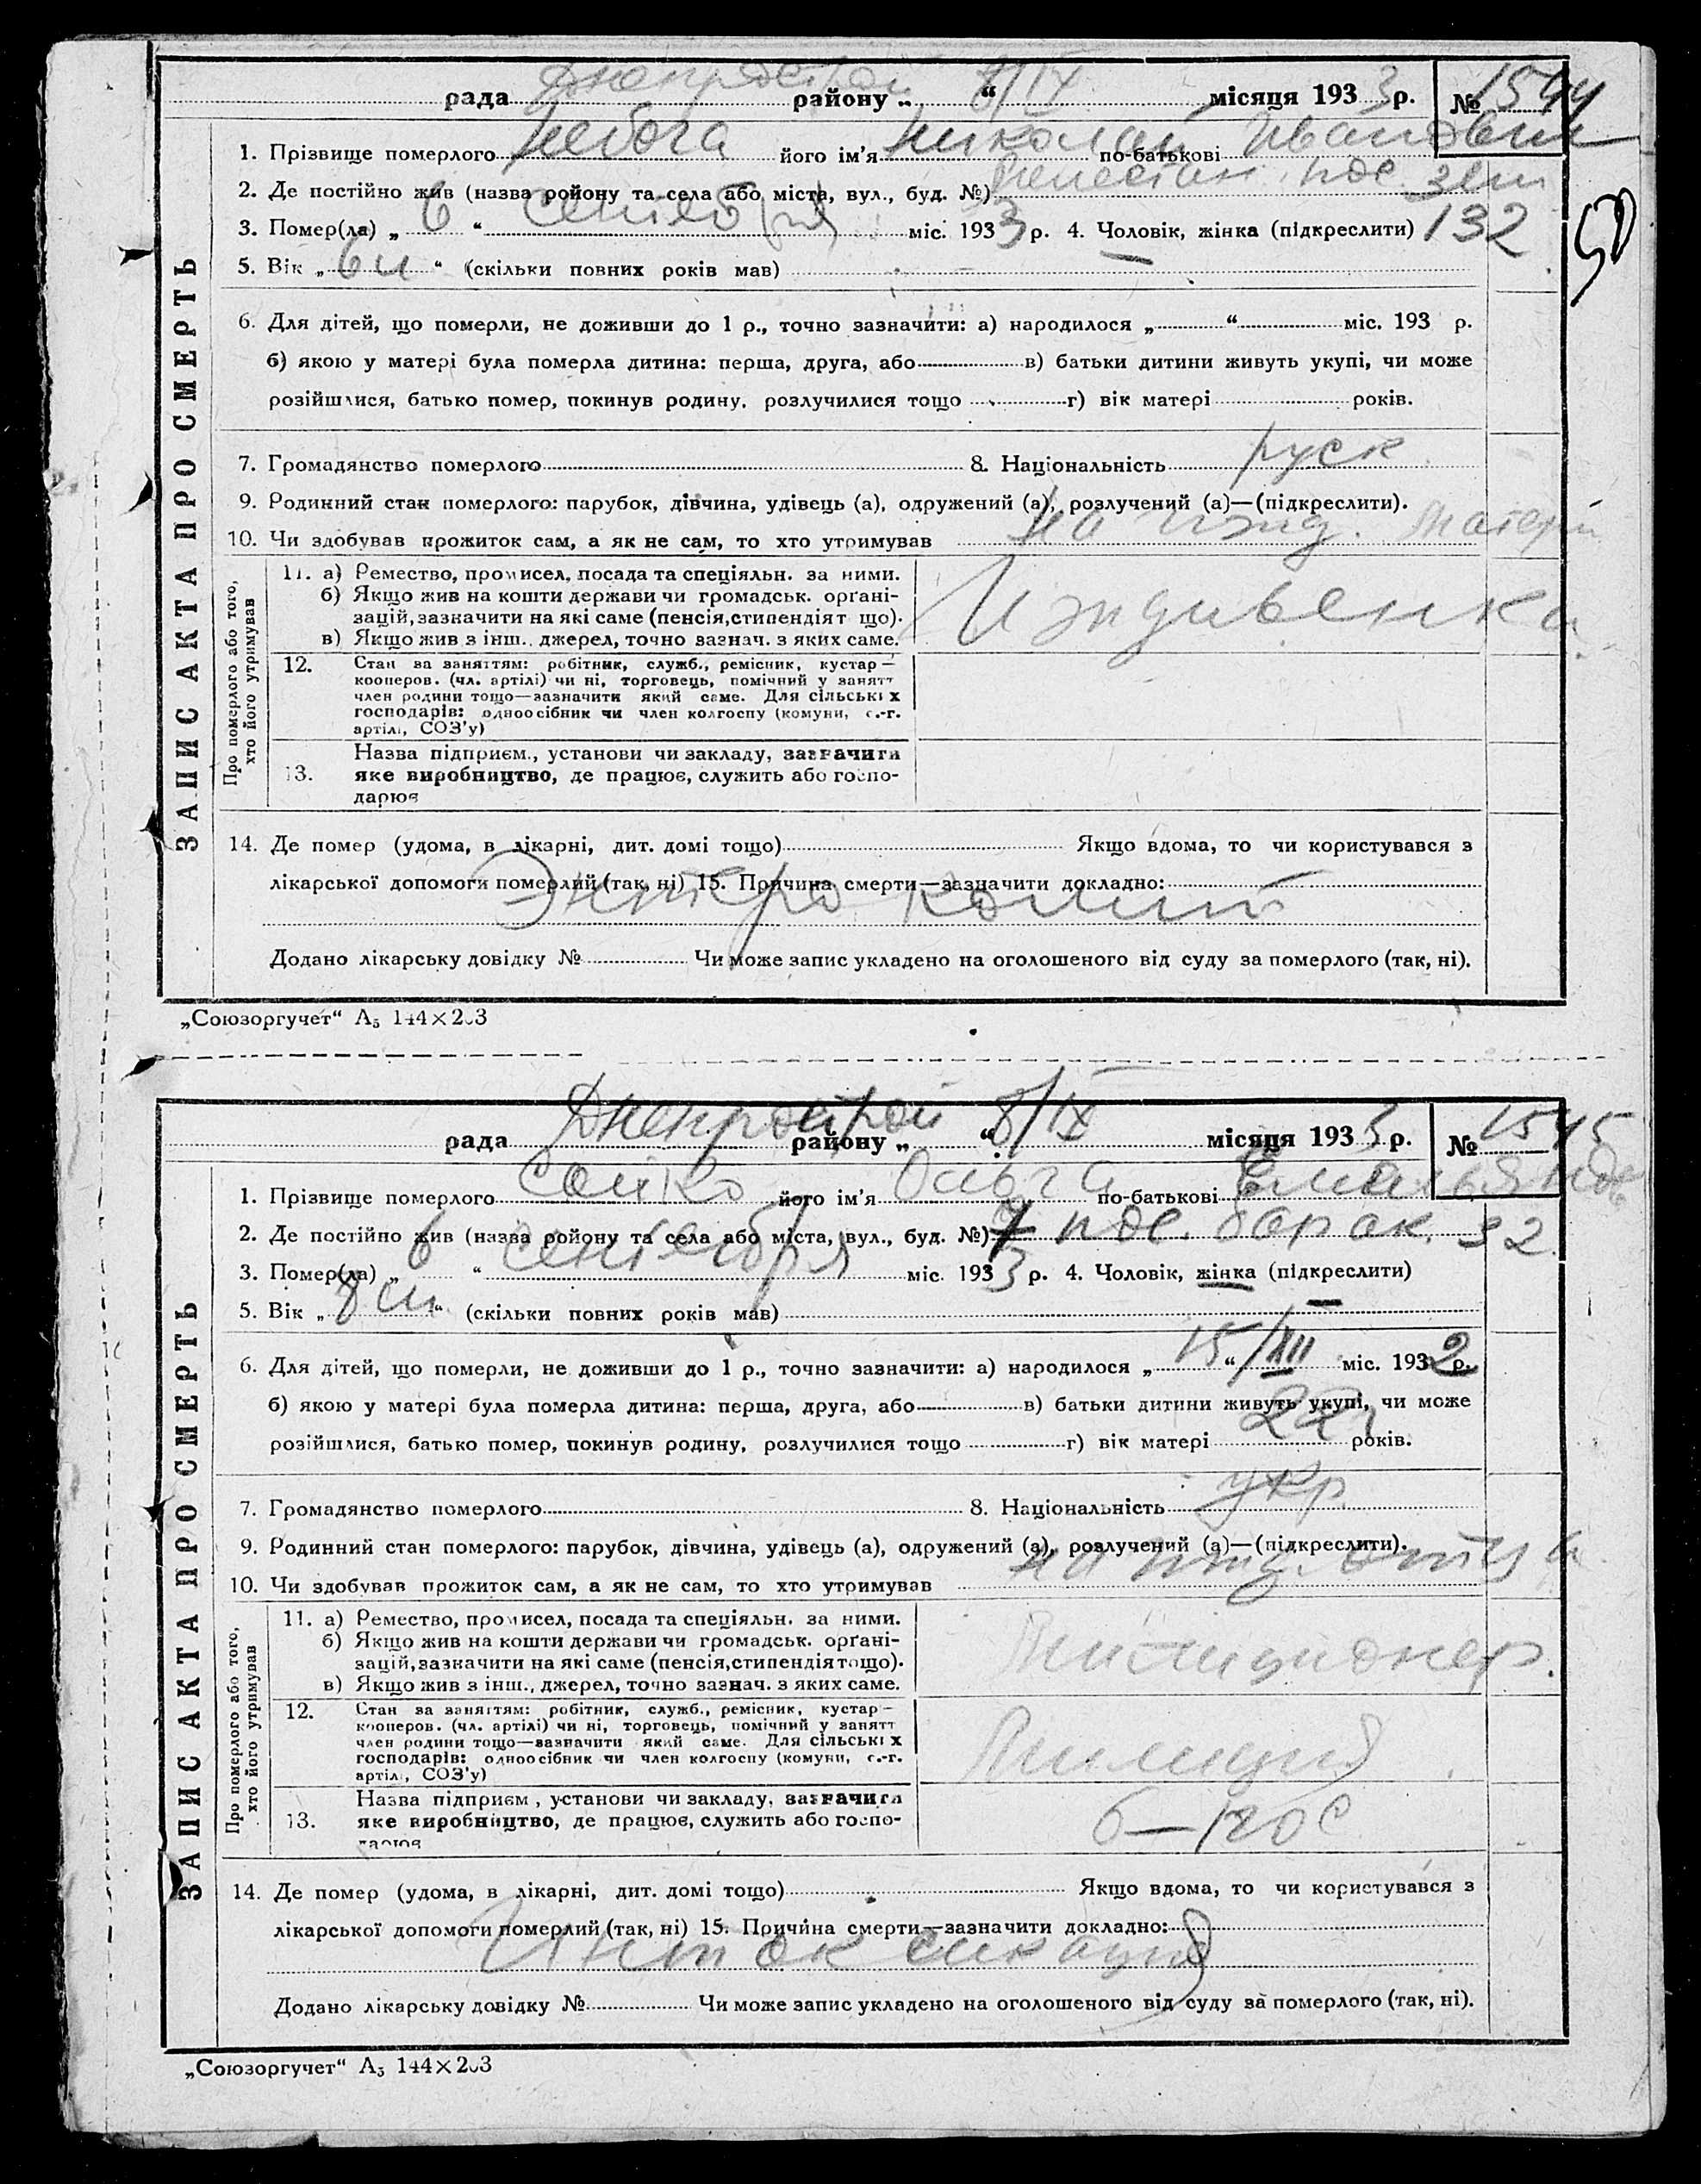 рада Днепрострой району „ 8/IX “ місяця 1933 р. № 1544
1. Прізвище померлого його ім'я Николай по-батькові Иванович
2. Де постійно жив (назва ройону та села або міста, вул., буд. №) пос. зем
3. Помер(ла) „ 6 “ сентебря міс. 1933 р. 4. Чоловік, жінка (підкреслити) 132
50
5. Вік „ 6 м “ (скільки повних років мав)
6. Для дітей, що померли, не доживши до 1 р., точно зазначити: а) народилося „ “ міс. 193 р.
б) якою у матері була померла дитина: перша, друга, або в) батьки дитини живуть укупі, чи може
розійшлися, батько помер, покинув родину, розлучилися тощо г) вік матері років.
7. Громадянство померлого 8. Національність руск
9. Родинний стан померлого: парубок, дівчина, удівець (а), одружений (а), розлучений (а)—(підкреслити).
10. Чи здобував прожиток сам, а як не сам, то хто утримував на ижд. матери
11. а) Ремество, промисел, посада та спеціяльн. за ними.
б) Якщо жив на кошти держави чи громадськ. орґані-
зацій, зазначити на які саме (пенсія, стипендіят що).
в) Якщо жив з інш., джерел, точно зазнач. з яких саме.
Иждивенка
12. Стан за заняттям: робітник, служб., ремісник, кустар—
кооперов. (чл. артілі) чи ні, торговець, помічний у занятт
член родини тощо—зазначити який саме. Для сільських
господарів: одноосібник чи член колгоспу (комуни, с.-г.
артілі, СОЗ'у)
13. Назва підприєм., установи чи закладу, зазначити
яке виробництво, де працює, служить або госпо-
дарює
14. Де помер (удома, в лікарні, дит. домі тощо) Якщо вдома, то чи користувався з
лікарської допомоги померлий (так, ні) 15. Причина смерти—зазначити докладно:
Энтеро колит
Додано лікарську довідку № Чи може запис укладено на оголошеного від суду за померлого (так, ні).
ЗАПИС АКТА ПРО СМЕРТЬ
Про померлого або того,
хто його утримував
„Союзоргучет“ А5 144×203
рада Днепрострой району „ 8/IX “ місяця 1933 р. № 1545
1. Прізвище померлого Сайко його ім'я Ольга по-батькові Емельянов
2. Де постійно жив (назва ройону та села або міста, вул., буд. №) 7 пос. барак. 32.
3. Помер(ла) „ 6 “ сентебря міс. 1933 р. 4. Чоловік, жінка (підкреслити)
5. Вік „ 8 м. “ (скільки повних років мав)
6. Для дітей, що померли, не доживши до 1 р., точно зазначити: а) народилося „ 15 “ /XII міс. 1932 р.
б) якою у матері була померла дитина: перша, друга, або в) батьки дитини живуть укупі, чи може
розійшлися, батько помер, покинув родину, розлучилися тощо г) вік матері 22 років.
7. Громадянство померлого 8. Національність укр
9. Родинний стан померлого: парубок, дівчина, удівець (а), одружений (а), розлучений (а)—(підкреслити).
10. Чи здобував прожиток сам, а як не сам, то хто утримував на ижд. отца
11. а) Ремество, промисел, посада та спеціяльн. за ними.
б) Якщо жив на кошти держави чи громадськ. орґані-
зацій, зазначити на які саме (пенсія, стипендія тощо).
в) Якщо жив з інш., джерел, точно зазнач. з яких саме.
Милиционер.
12. Стан за заняттям: робітник, служб., ремісник, кустар—
кооперов. (чл. артілі) чи ні, торговець, помічний у занятт
член родини тощо—зазначити який саме. Для сільських
господарів: одноосібник чи член колгоспу (комуни, с.-г.
артілі, СОЗ'у)
Милиция
13. Назва підприєм., установи чи закладу, зазначити
яке виробництво, де працює, служить або госпо-
дарює
6—пос
14. Де помер (удома, в лікарні, дит. домі тощо) Якщо вдома, то чи користувався з
лікарської допомоги померлий (так, ні) 15. Причина смерти—зазначити докладно:
Интоксикация
Додано лікарську довідку № Чи може запис укладено на оголошеного від суду за померлого (так, ні).
ЗАПИС АКТА ПРО СМЕРТЬ
Про померлого або того,
хто його утримував
„Союзоргучет“ А5 144×203